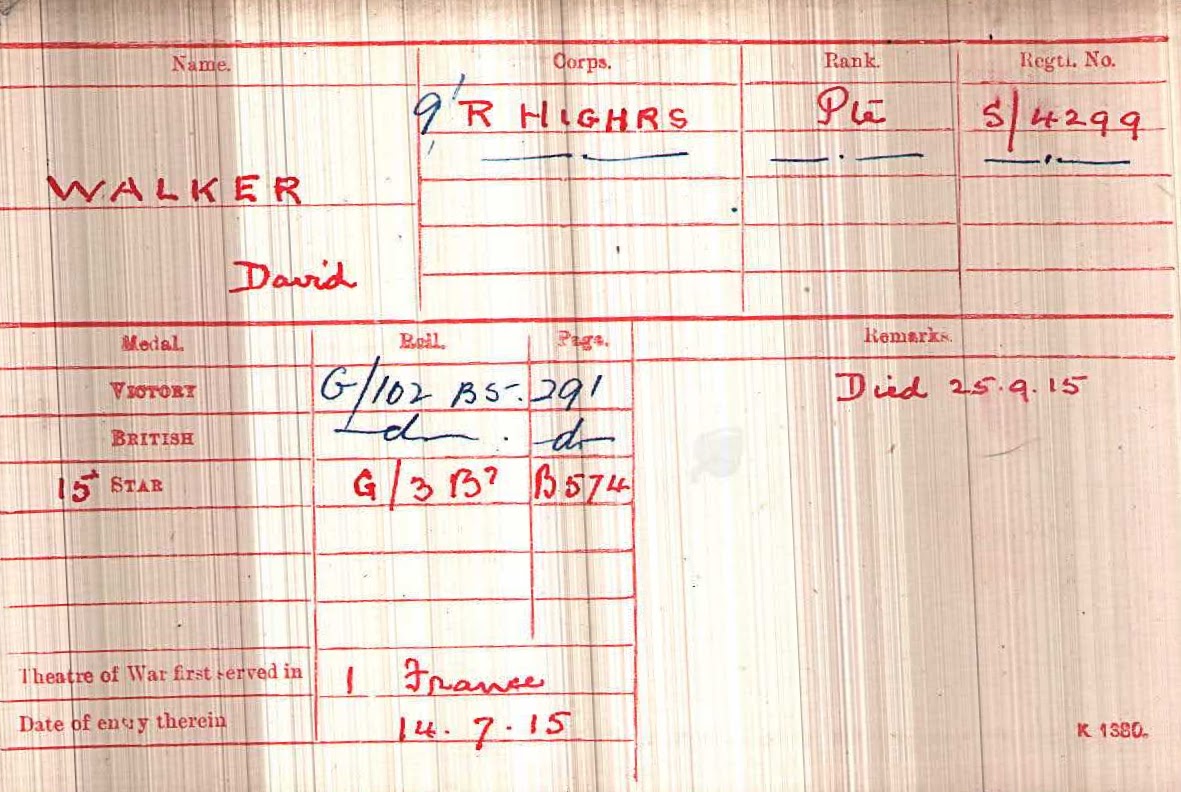 Name. Corps. Rank. Regtl. No.
9/ R HIGHRS Pte S/4299
WALKER
David
Medal. Roll. Page. Remarks.
VICTORY G/102 B5. 291 Died 25.9.15
BRITISH —do— . —do—
15 STAR G/3 B? B574
Theatre of War first served in 1 France
Date of entry therein 14.7.15
K 1380.